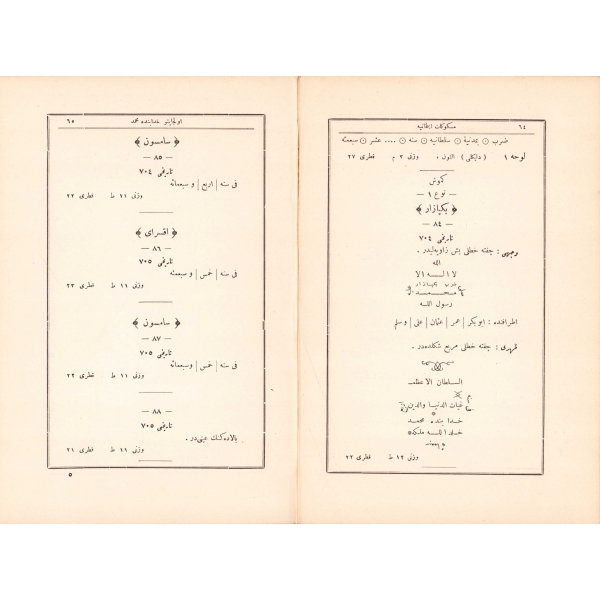 ٦٤ مسكوكات ايلخانيه
ضرب ⊙ بمدنية ⊙ سلطانيه ⊙ سنه ⊙ .... عشر ⊙ سبعمئه
لوحه ١ ( دليكلى ) آلتون . وزنى ٣ م قطرى ٢٧
كموش
— نوع ١ —
﴿ بكپازار ﴾
— ٨٤ —
تاريخى ٧٠٤
وجهى : چفته خطلى بش زاويه‌ليدر .
الله
لا الــه الا
ضرب بكپازار
محــمــد
رسول الله
اطرافنده : ابوبكر | عمر | عثمان | على | وسلم
ظهرى : چفته خطلى مربع شكلنده‌در .
السلطان الاعظم
غياث الدنيا والدين
خدا بنده محمد
خلد الله ملكه
وزنى ١٢ ط قطرى ٢٢
اولجايتو خدابنده محمد ٦٥
﴿ سامسون ﴾
— ٨٥ —
تاريخى ٧٠٤
فى سنه | اربع | و سبعمائه
وزنى ١١ ط قطرى ٢٢
﴿ اقسراى ﴾
— ٨٦ —
تاريخى ٧٠٥
فى سنه | خمس | و سبعمئه
وزنى ١١ ط قطرى ٢٣
﴿ سامسون ﴾
— ٨٧ —
تاريخى ٧٠٥
فى سنه | خمس | و سبعمائه
وزنى ١١ ط قطرى ٢٢
— ٨٨ —
تاريخى ٧٠٥
بالاده‌كنك عينى‌در .
وزنى ١١ ط قطرى ٢١
٥